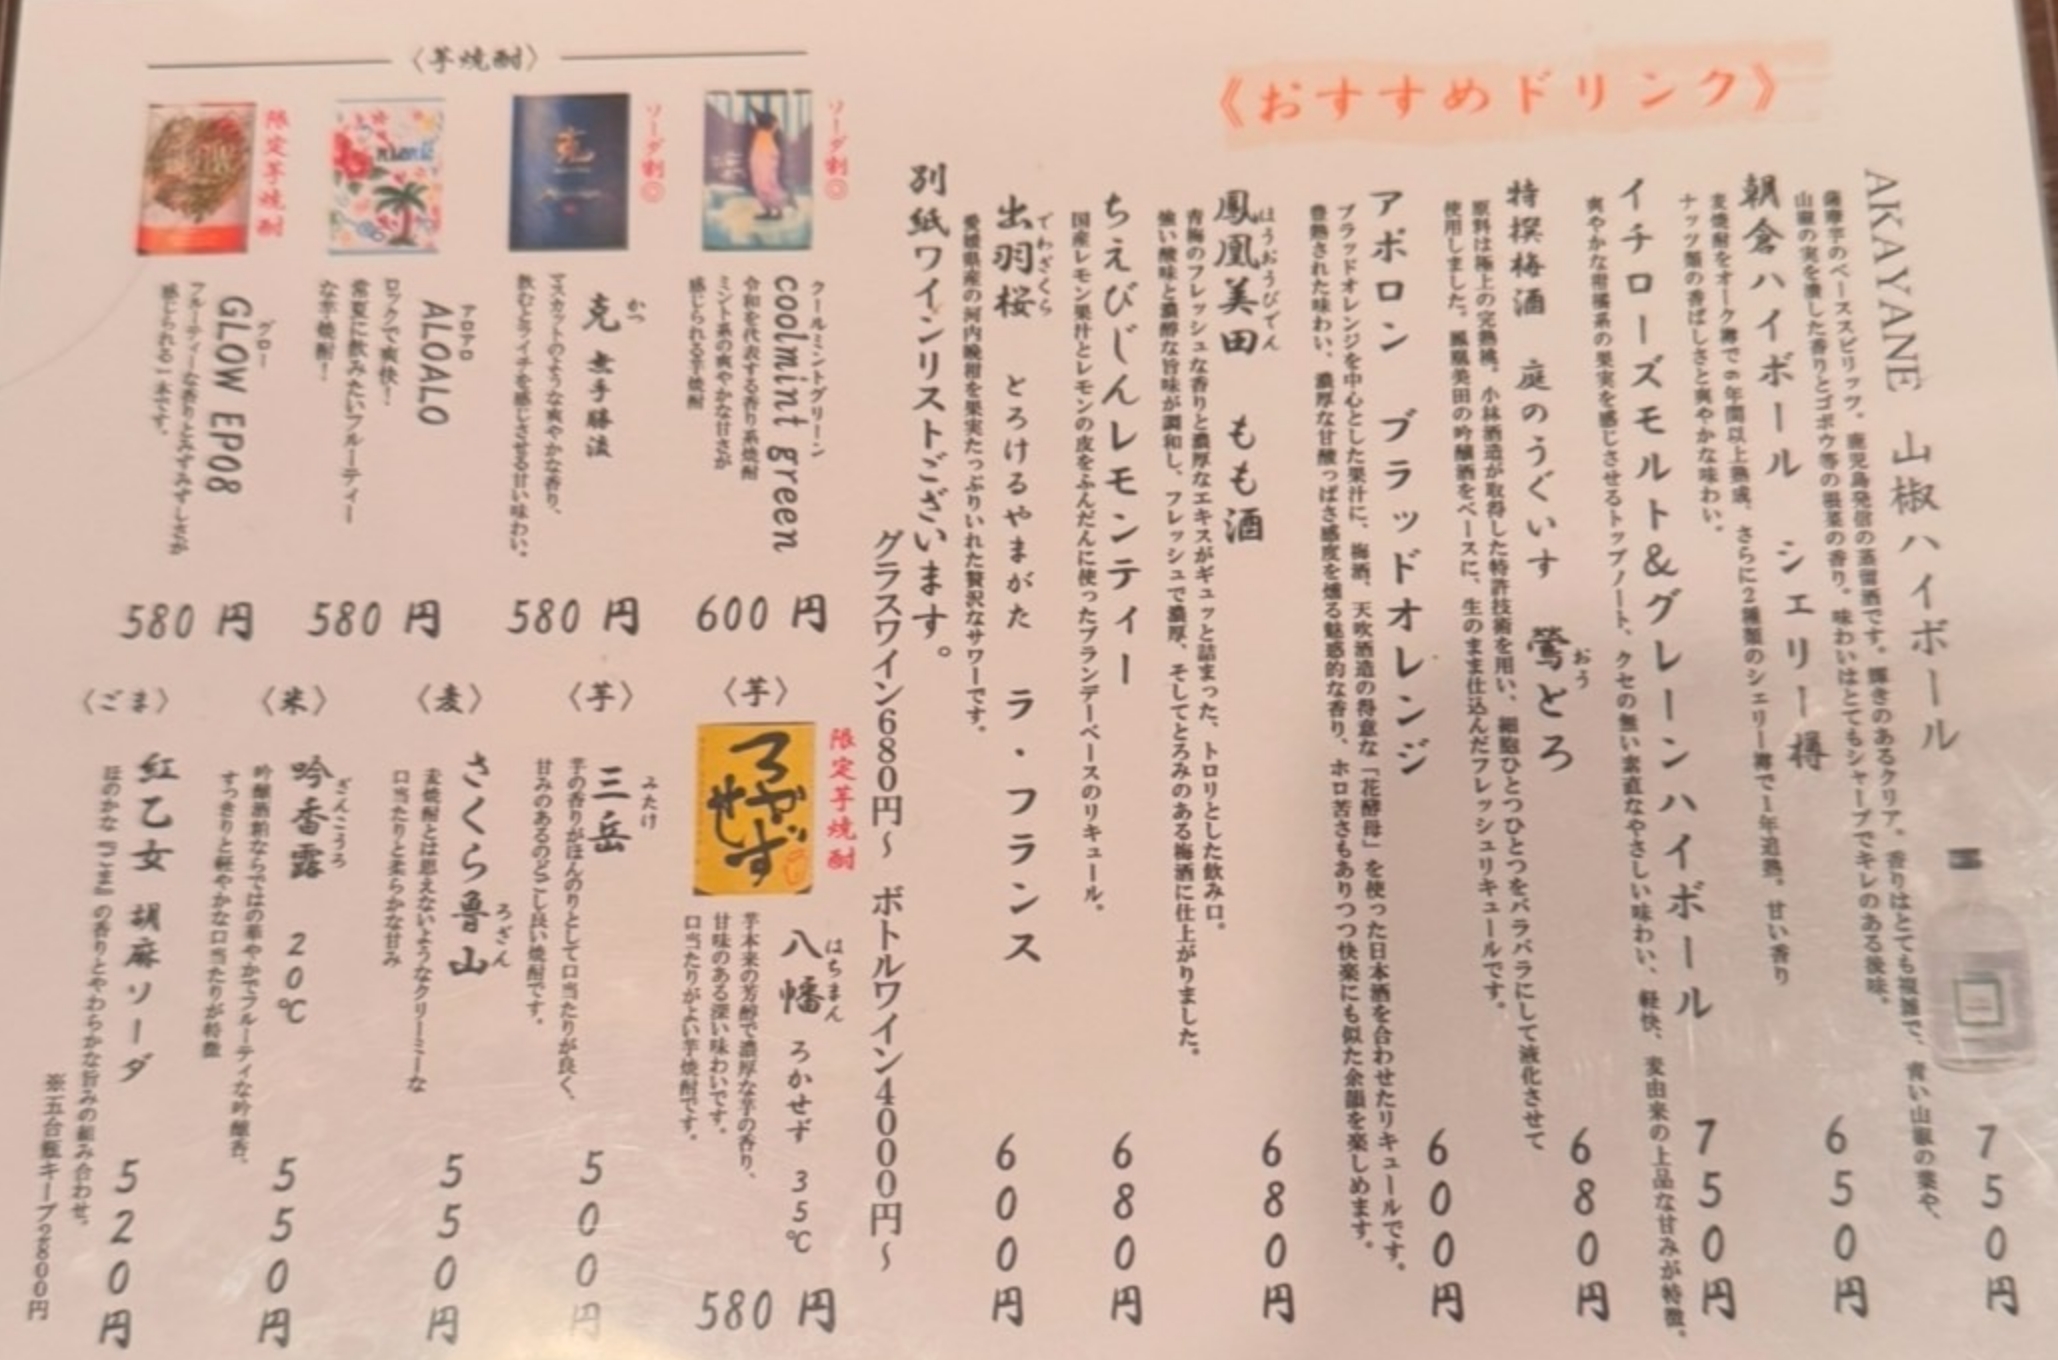 《おすすめドリンク》
AKAYANE 山椒ハイボール 750円
薩摩芋のベーススピリッツ。鹿児島発信の蒸留酒です。輝きのあるクリア。香りはとても複雑で、青い山椒の葉や、
山椒の実を潰した香りとゴボウ等の根菜の香り。味わいはとてもシャープでキレのある後味。
朝倉ハイボール シェリー樽 650円
麦焼酎をオーク樽で6年間以上熟成、さらに2種類のシェリー樽で1年追熟。甘い香り
ナッツ類の香ばしさと爽やかな味わい。
イチローズモルト&グレーンハイボール 750円
爽やかな柑橘系の果実を感じさせるトップノート、クセの無い素直なやさしい味わい、軽快、麦由来の上品な甘みが特徴。
特撰梅酒 庭のうぐいす 鶯とろ 680円
おう
原料は極上の完熟梅。小林酒造が取得した特許技術を用い、細胞ひとつひとつをバラバラにして液化させて
使用しました。鳳凰美田の吟醸酒をベースに、生のまま仕込んだフレッシュリキュールです。
アポロン ブラッドオレンジ 600円
ブラッドオレンジを中心とした果汁に、梅酒、天吹酒造の得意な「花酵母」を使った日本酒を合わせたリキュールです。
豊熟された味わい、濃厚な甘酸っぱさ感度を燻る魅惑的な香り、ホロ苦さもありつつ快楽にも似た余韻を楽しめます。
鳳凰美田 もも酒 680円
ほうおうびでん
青梅のフレッシュな香りと濃厚なエキスがギュッと詰まった、トロリとした飲み口。
強い酸味と濃醇な旨味が調和し、フレッシュで濃厚、そしてとろみのある梅酒に仕上がりました。
ちえびじんレモンティー 680円
国産レモン果汁とレモンの皮をふんだんに使ったブランデーベースのリキュール。
出羽桜 とろけるやまがた ラ・フランス 600円
でわざくら
愛媛県産の河内晩柑を果実たっぷりいれた贅沢なサワーです。
別紙ワインリストございます。
グラスワイン680円~ ボトルワイン4000円~
〈芋焼酎〉
ソーダ割◎
クールミントグリーン
coolmint green
令和を代表する香り系焼酎
ミント系の爽やかな甘さが
感じられる芋焼酎
600円
ソーダ割◎
克
かつ
克 無手勝流
マスカットのような爽やかな香り、
飲むとライチを感じさせる甘い味わい。
580円
アロアロ
ALOALO
ロックで爽快!
常夏に飲みたいフルーティー
な芋焼酎!
580円
限定芋焼酎
グロー
GLOW EP08
フルーティーな香りとみずみずしさが
感じられる一本です。
580円
〈芋〉
限定芋焼酎
ろかせず
はちまん
八幡 ろかせず 35℃
芋本来の芳醇で濃厚な芋の香り、
甘味のある深い味わいです。
口当たりがよい芋焼酎です。
580円
〈芋〉
みたけ
三岳
芋の香りがほんのりとして口当たりが良く、
甘みのあるのどごし良い焼酎です。
500円
〈麦〉
さくら魯山
ろざん
麦焼酎とは思えないようなクリーミーな
口当たりと柔らかな甘み
550円
〈米〉
ぎんこうろ
吟香露 20℃
吟醸酒粕ならではの華やかでフルーティな吟醸香。
すっきりと軽やかな口当たりが特徴
550円
〈ごま〉
紅乙女 胡麻ソーダ
ほのかな『ごま』の香りとやわらかな旨みの組み合わせ。
520円
※五合瓶キープ2800円